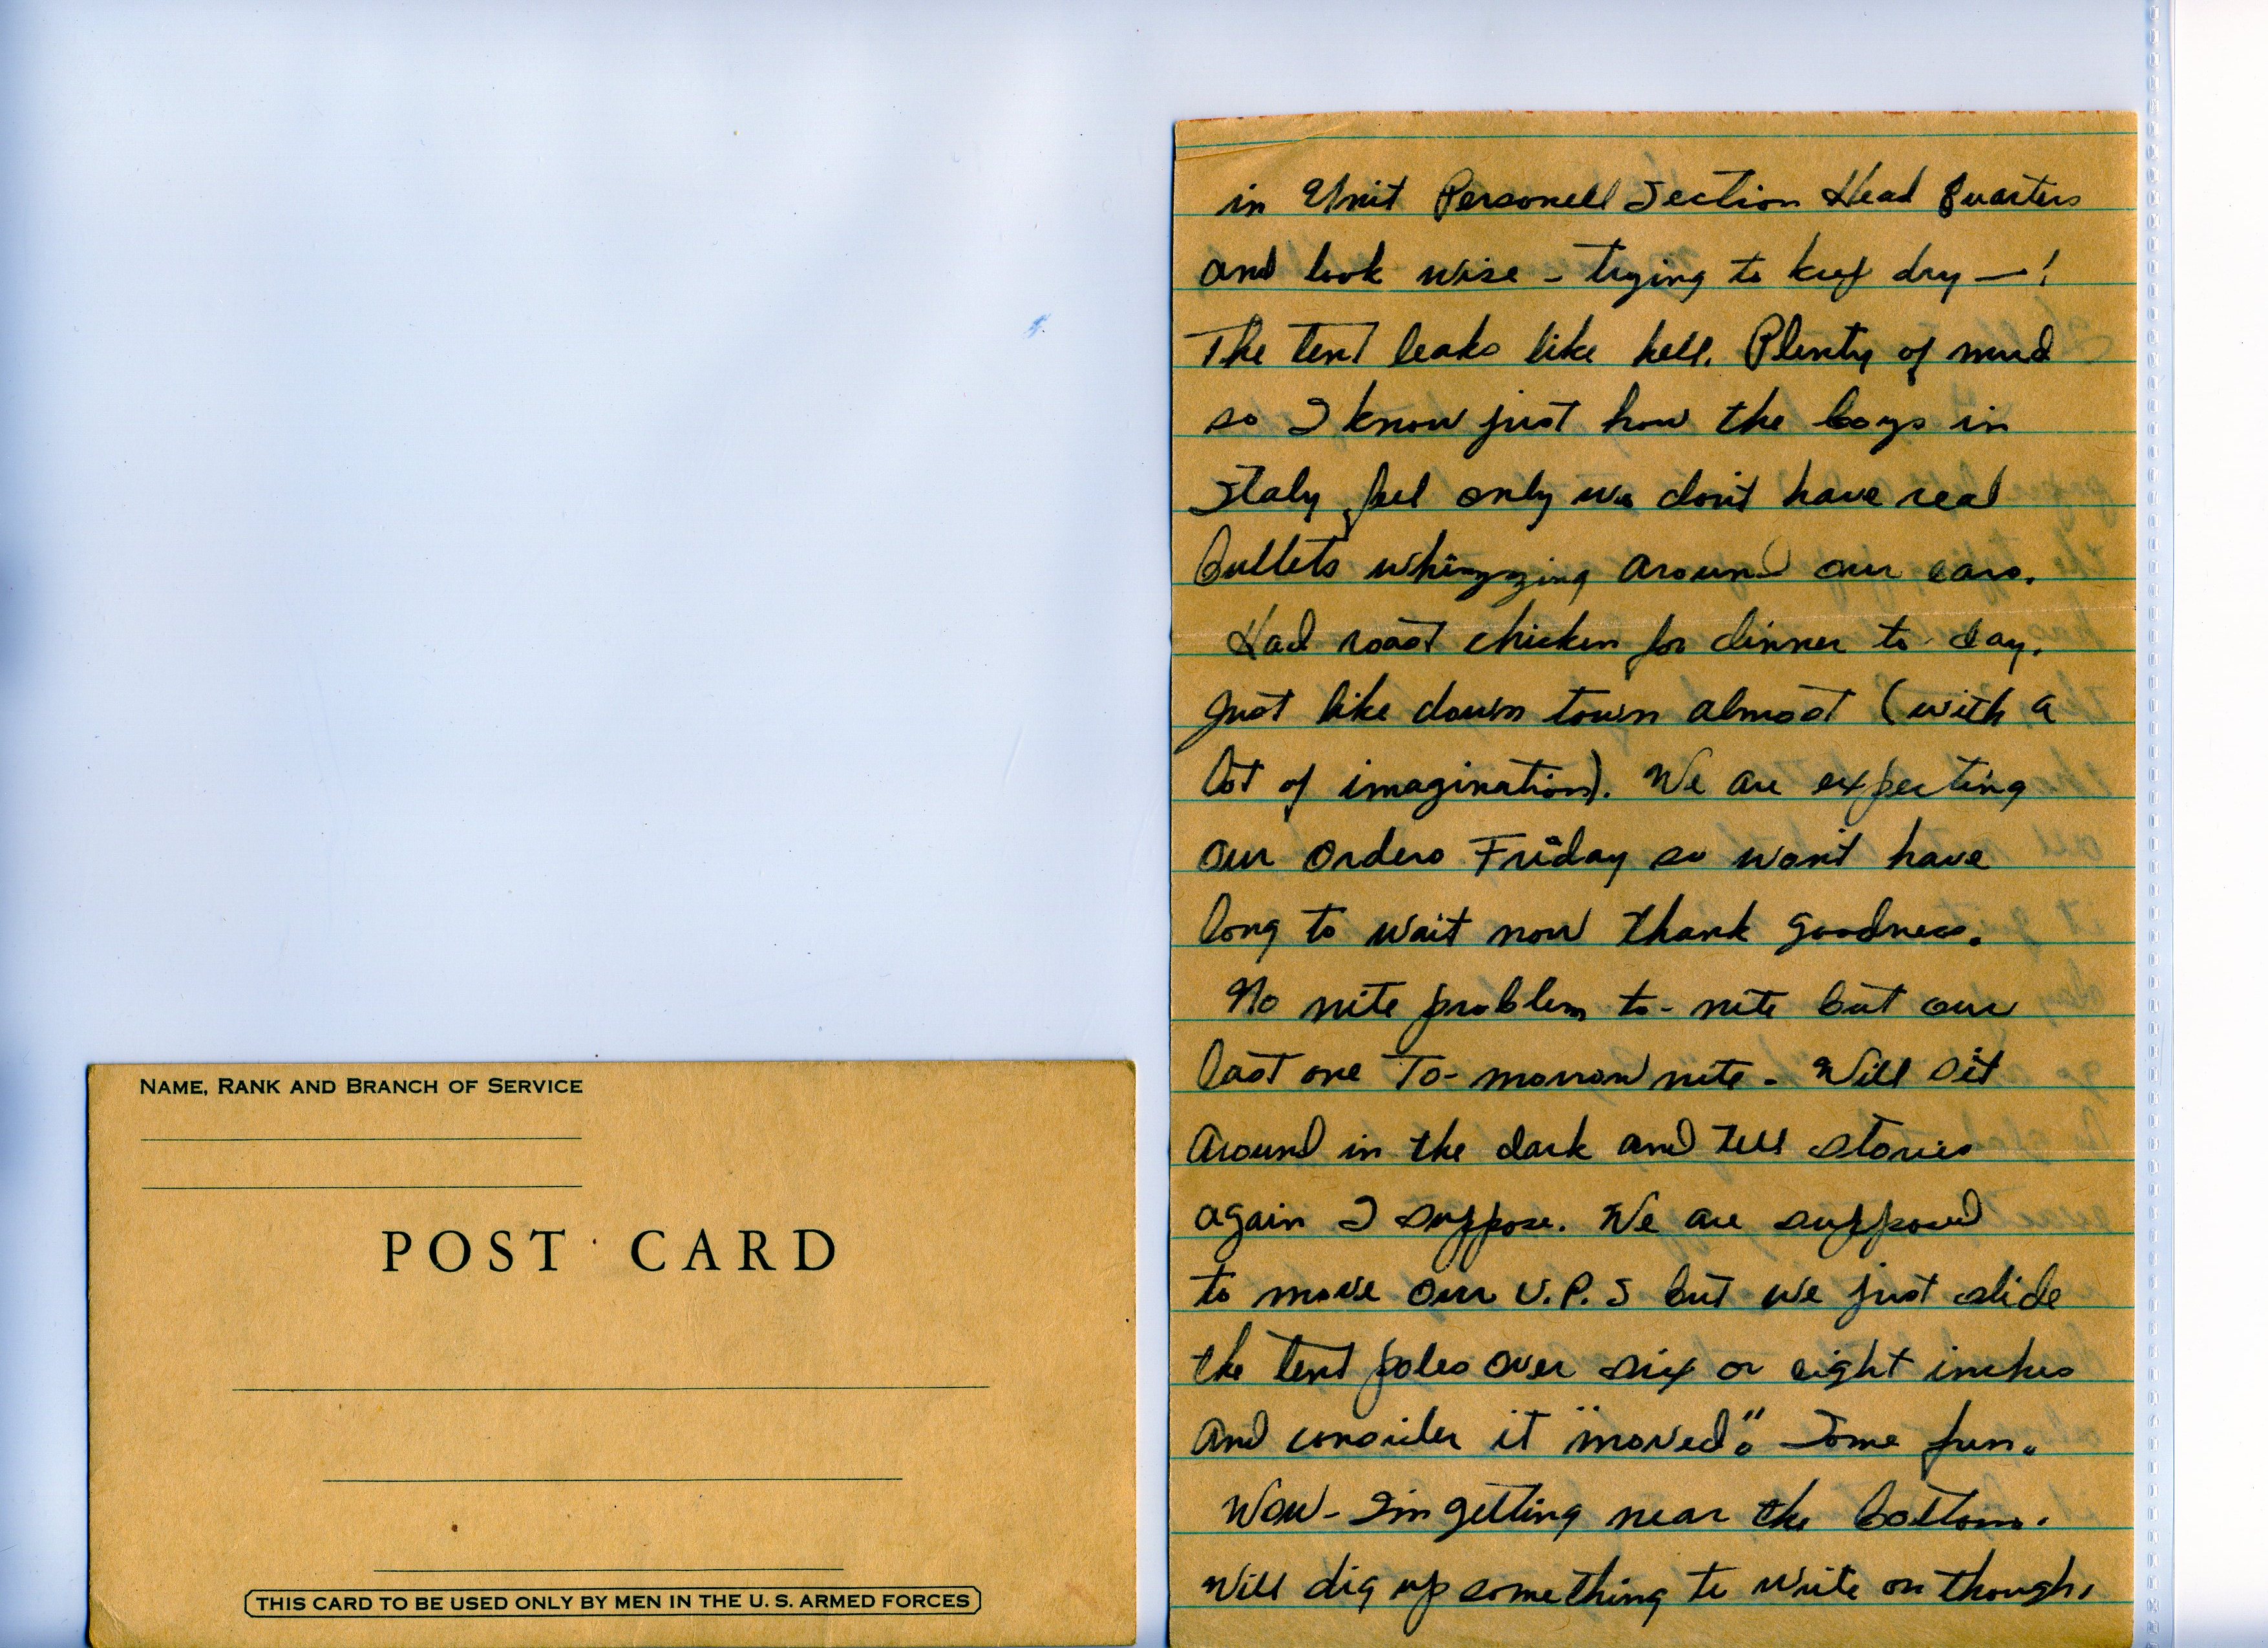 NAME, RANK AND BRANCH OF SERVICE
POST CARD
THIS CARD TO BE USED ONLY BY MEN IN THE U. S. ARMED FORCES
in Unit Personell Section Head Quarters
and look wise - trying to keep dry —!
The tent leaks like hell. Plenty of mud
so I know just how the boys in
Italy feel only we don't have real
bullets whizzing around our ears.
Had roast chicken for dinner to-day.
Just like down town almost (with a
lot of imagination). We are expecting
our orders Friday so won't have
long to wait now thank goodness.
No nite problem to-nite but our
last one To-morrow nite. Will sit
around in the dark and tell stories
again I suppose. We are supposed
to move our U.P.S but we just slide
the tent poles over six or eight inches
and consider it "moved". Some fun.
Wow - I'm getting near the bottom.
Will dig up something to write on though,